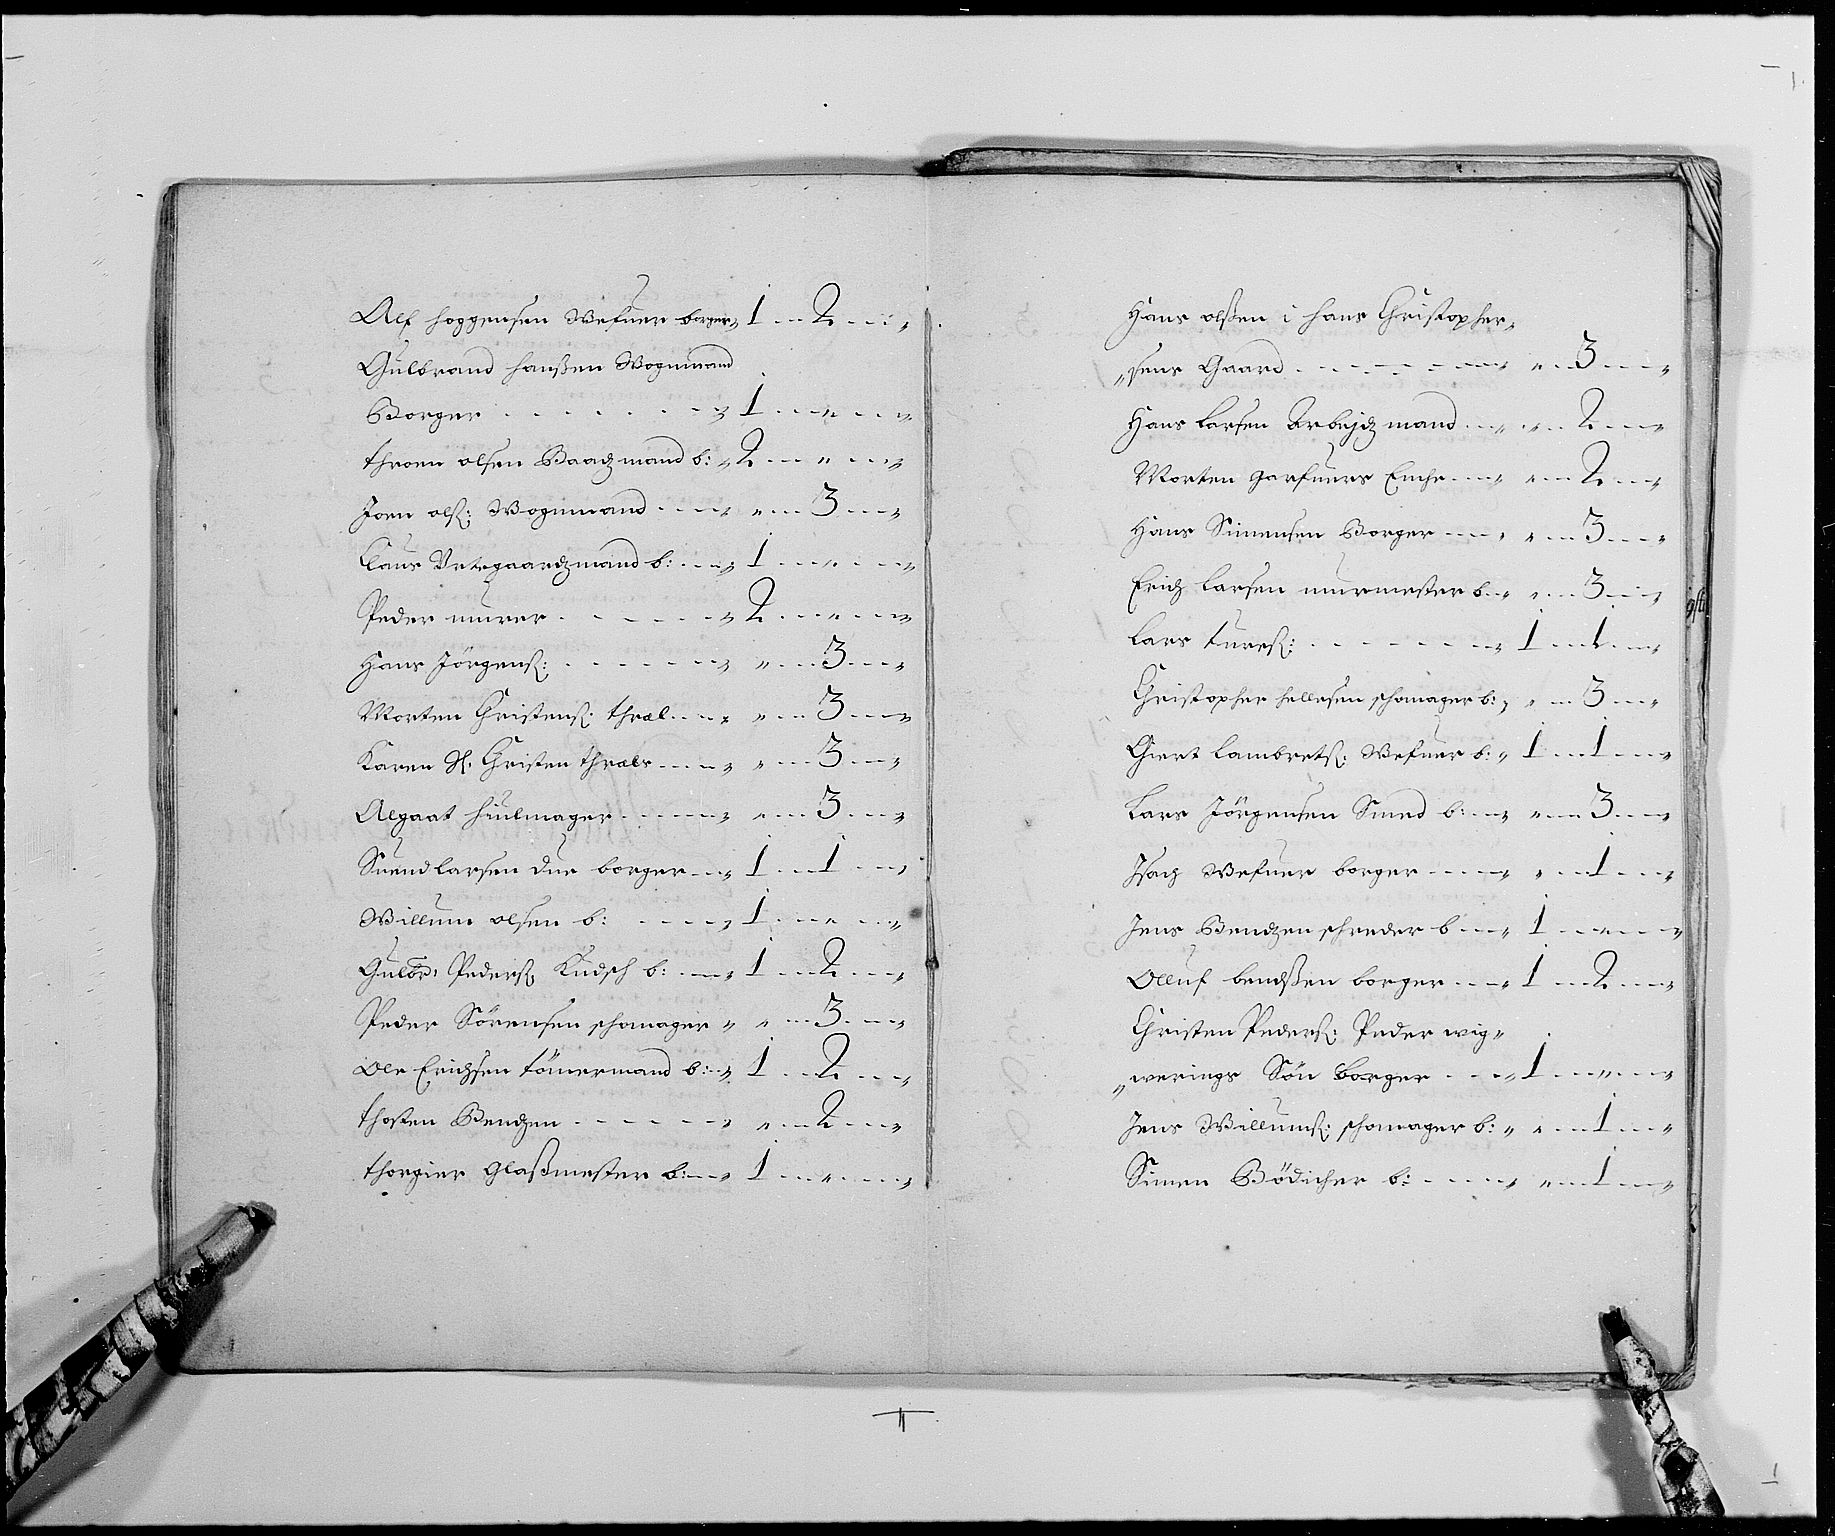 Alf hoggensen Wefuer borger, 1 - 2 - "
Gulbrand hanßen Wognmand
Borger - - - 1 - " - "
throen olsen Baadzmand b: 2 - " - "
Joen olß: Wognmand - - " - 3 - "
Claus Urtegaardzmand b: - - 1 - " - "
Peder murer - - - 2 - " - "
Hans Jörgenß: - - - " - 3 - "
Morten Christenß: thral - - " - 3 - "
Karen Sl. Christen thrals - - " - 3 - "
Algaat hiulmager - - - " - 3 - "
Suend larsen due borger - 1 - 1 - "
Willum olsen b: - - - 1 - " - "
Gulbr: Pederß: Kudsch b: - - 1 - 2 - "
Peder Sörensen schomager " " - 3 - "
Ole Erichsen tömermand b: - 1 - 2 - "
thosten Bendzen - - - " - 2 - "
thorgier Glaßmester b: - 1 - " - "
Hans olßen i hans Christopher,,
,,sens Gaard - - - " - 3 - "
Hans larsen Arbejdzmand - - " - 2 - "
Morten garfuers Enche - - " - 2 - "
Hans Simensen Borger - - " - 3 - "
Erich larsen murmester b: " - 3 - "
Lars tuреß: - - - 1 - 1 - "
Christopher hellesen schomager b: " - 3 - "
Giert Lambretß: Wefuer b: 1 - 1 - "
Lars Jörgensen Smed b: - " - 3 - "
Isach Wefuer borger - - " - 1 - "
Jens Bendzen schreder b - - 1 - " - "
Olluf bendßen borger - - 1 - 2 - "
Christen Pederß: Peder wig,,
,,werings Sön borger - - 1 - " - "
Jens Willumß: schomager b: " " - 1 - "
Simen Bödicher b: - - - " - 1 - "